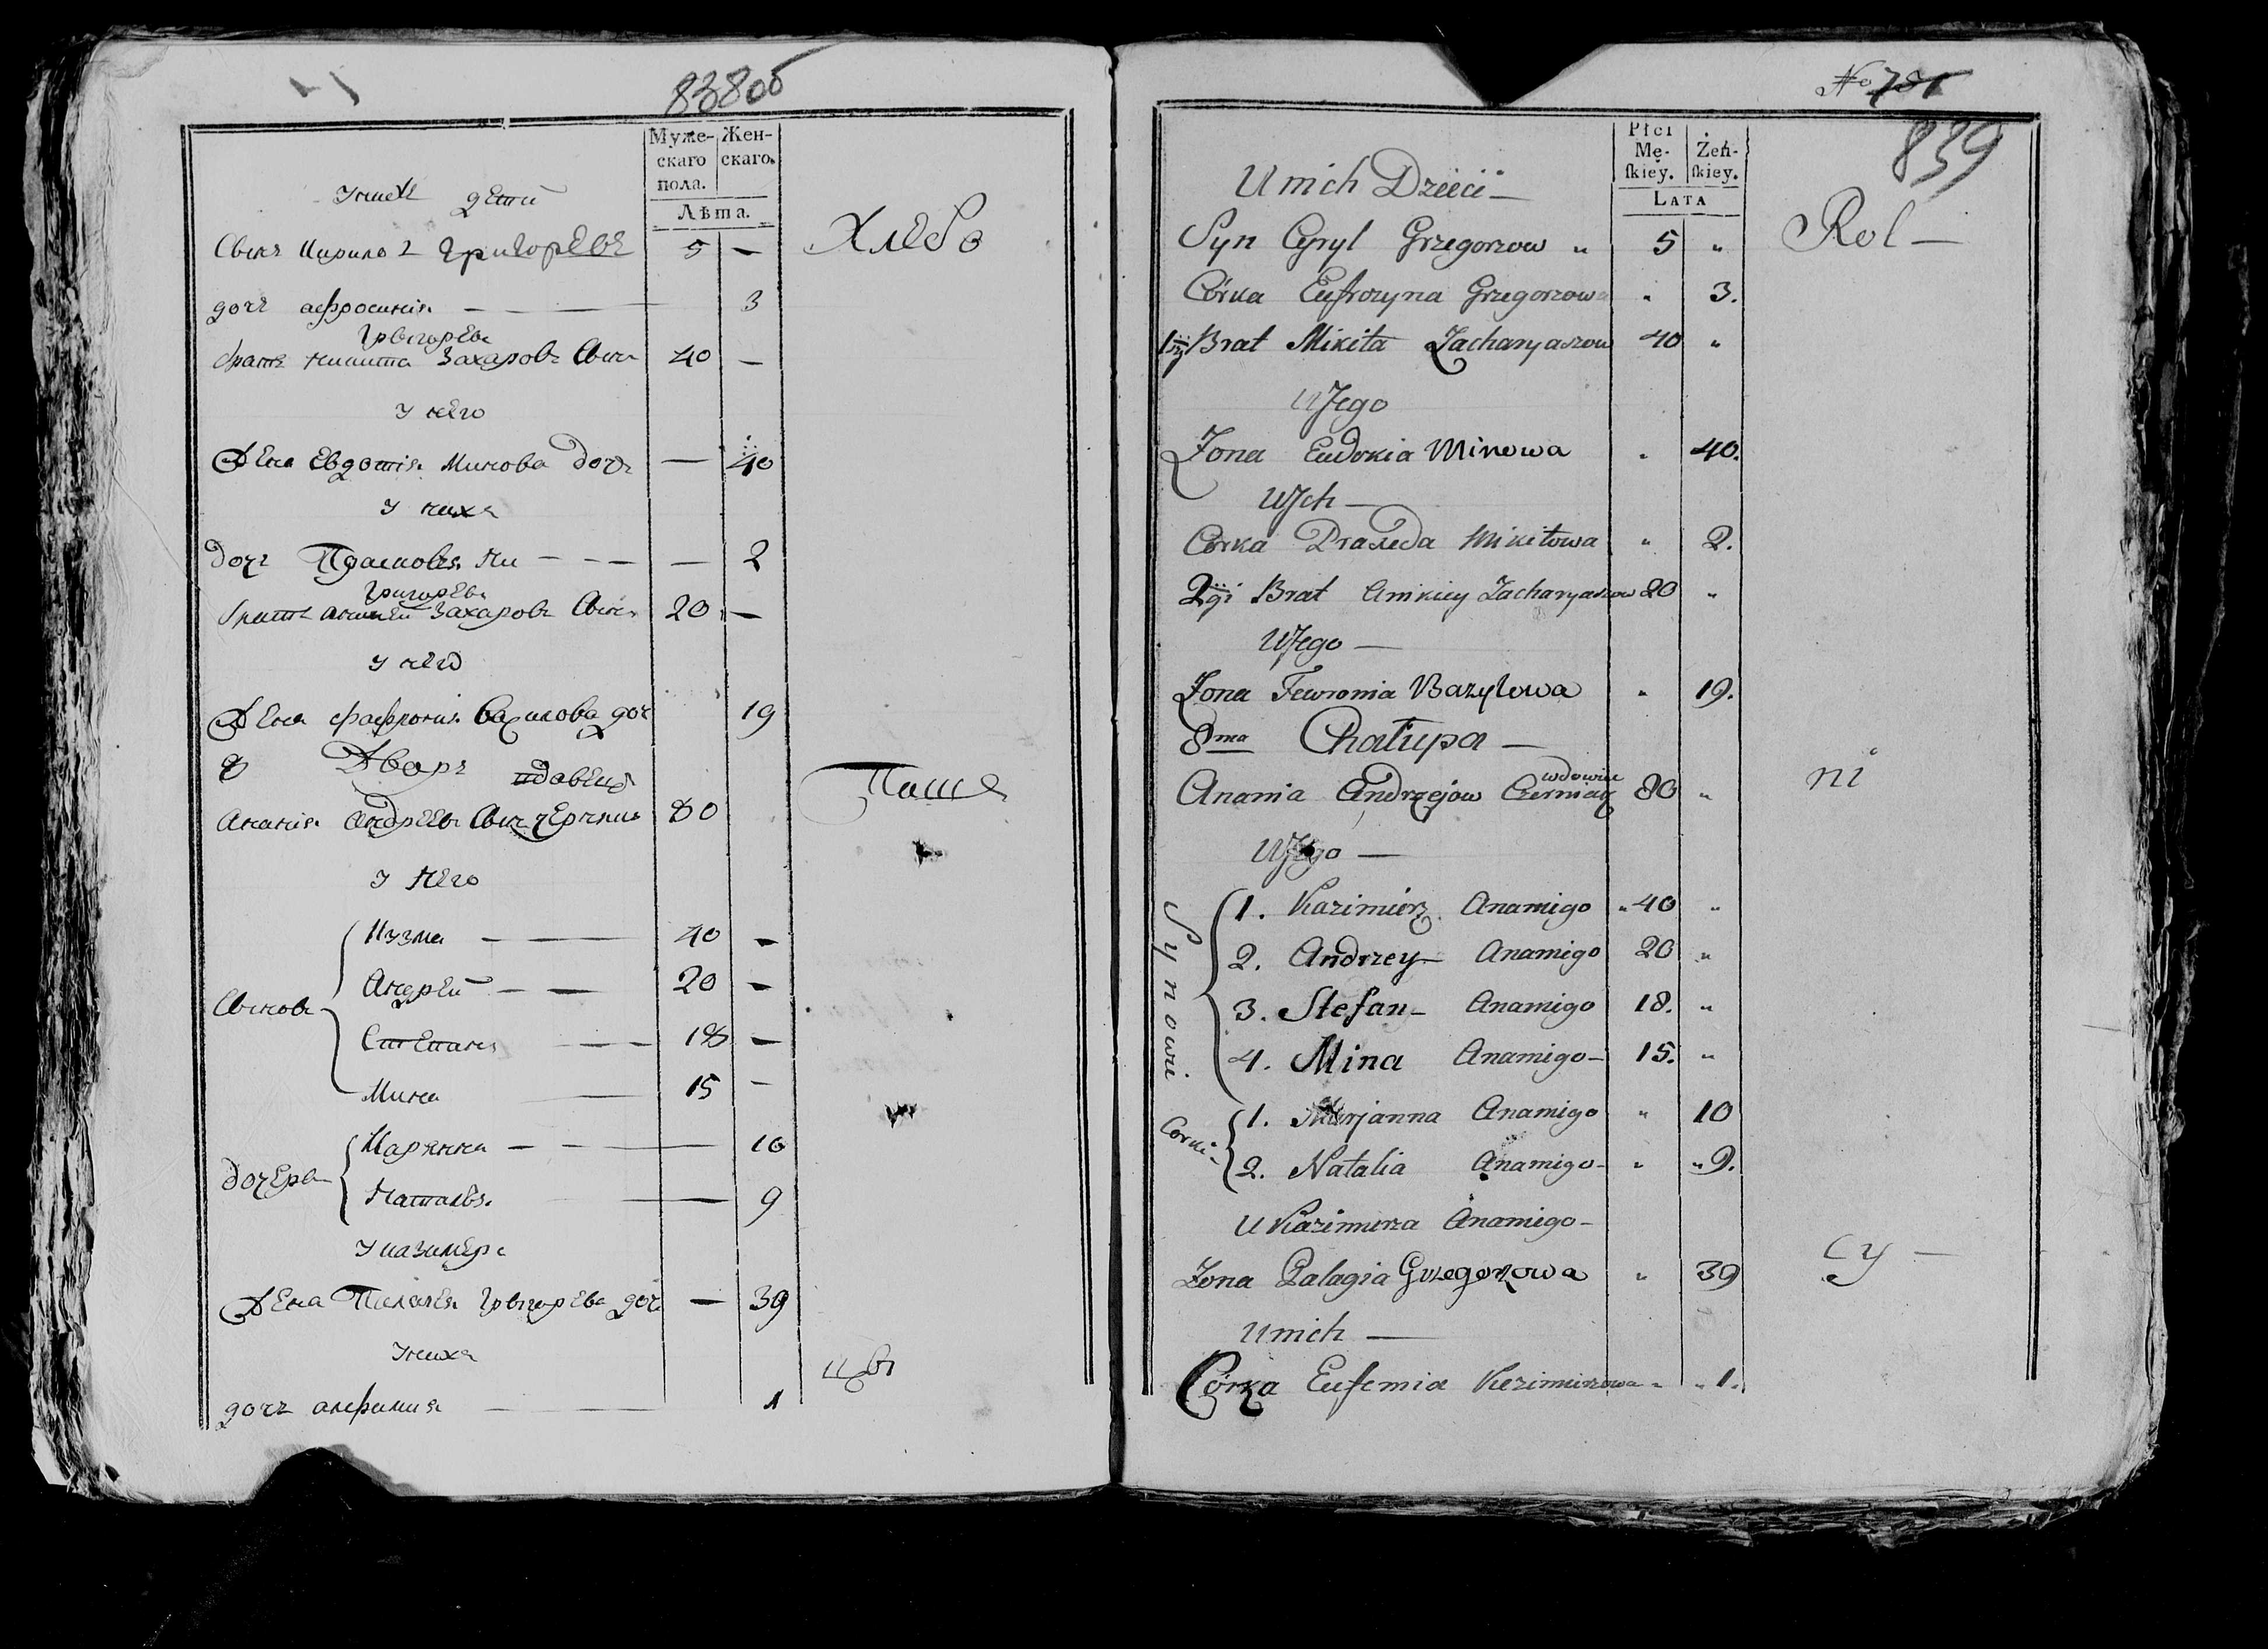 838об
Муже-
скаго
пола.
Жен-
скаго.
Лѣта.
У нихъ дети
Сынъ Кирило Григорьевъ 5 —
Хлебо
дочь афросинія — 3
Григорьевъ
братъ никита Захаровъ Сынъ 40 —
У него
Жена Евдотія Минова дочь — 40
У нихъ
дочь Прасковія Ни — — — — 2
Григорьевъ
братъ Захаровъ Сынъ 20 —
У него
Жена Базилова дочь 19
8 Дворъ
вдовецъ
Ананія Андреевъ Сынъ 80
Паше
У него
Сыновъ
Кузма — — 40 —
Андрей — — 20 —
Степанъ — — 18 —
Мина — 15 —
дочеръ
Марянна — — 10
Наталія — — 9
У казимера
Жена Палагія Григорьева дочь — 39
У нихъ
цы
дочь анфимія — 1
No 781
839
Płci
Mę-
skiey.
Żeń-
skiey.
LATA
U nich Dzieci —
Syn Cyryl Grzegorzow „ 5 „
Rol —
Córka Eufrozyna Grzegorzowa „ 3.
1szy Brat Mikita Zacharyaszow 40 „
U Jego
Żona Eudokia Minowa „ 40.
U Ich —
Córka Praxeda Mikitowa „ 2.
2gi Brat Zacharyaszow 20 „
U Jego —
Żona Fewronia Bazylowa „ 19.
8ma Chałupa —
wdowiec
Anania Andrzejow Czerniak 80 „
ni
U Jego —
Synowie
1. Kazimierz Anamigo „ 40 „
2. Andrzey — Anamigo 20 „
3. Stefan — Anamigo 18. „
4. Mina Anamigo — 15. „
Corki —
1. Marjanna Anamigo „ 10
2. Natalia Anamigo — „ „ 9.
U Kazimierza Anamigo —
cy —
Żona Palagia Grzegorzowa „ 39
U nich —
Córka Eufemia Kazimierzowa „ „ 1.